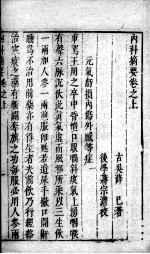 內科摘要卷之上
古吳薛 已著
後學壽宗濬校
元氣虧損內傷外感等症
車駕王用之卒中昏憒口眼喎斜痰氣上湧咽喉
有聲六脉沉伏此真氣虛而風邪所乘以三生飲
一兩加人參一兩煎服即甦若遺尿手撒口開鼾
睡為不治用前藥亦有得生者夫前飲乃行經絡
治寒痰之藥有斬關奪旗之功每服必用人參兩